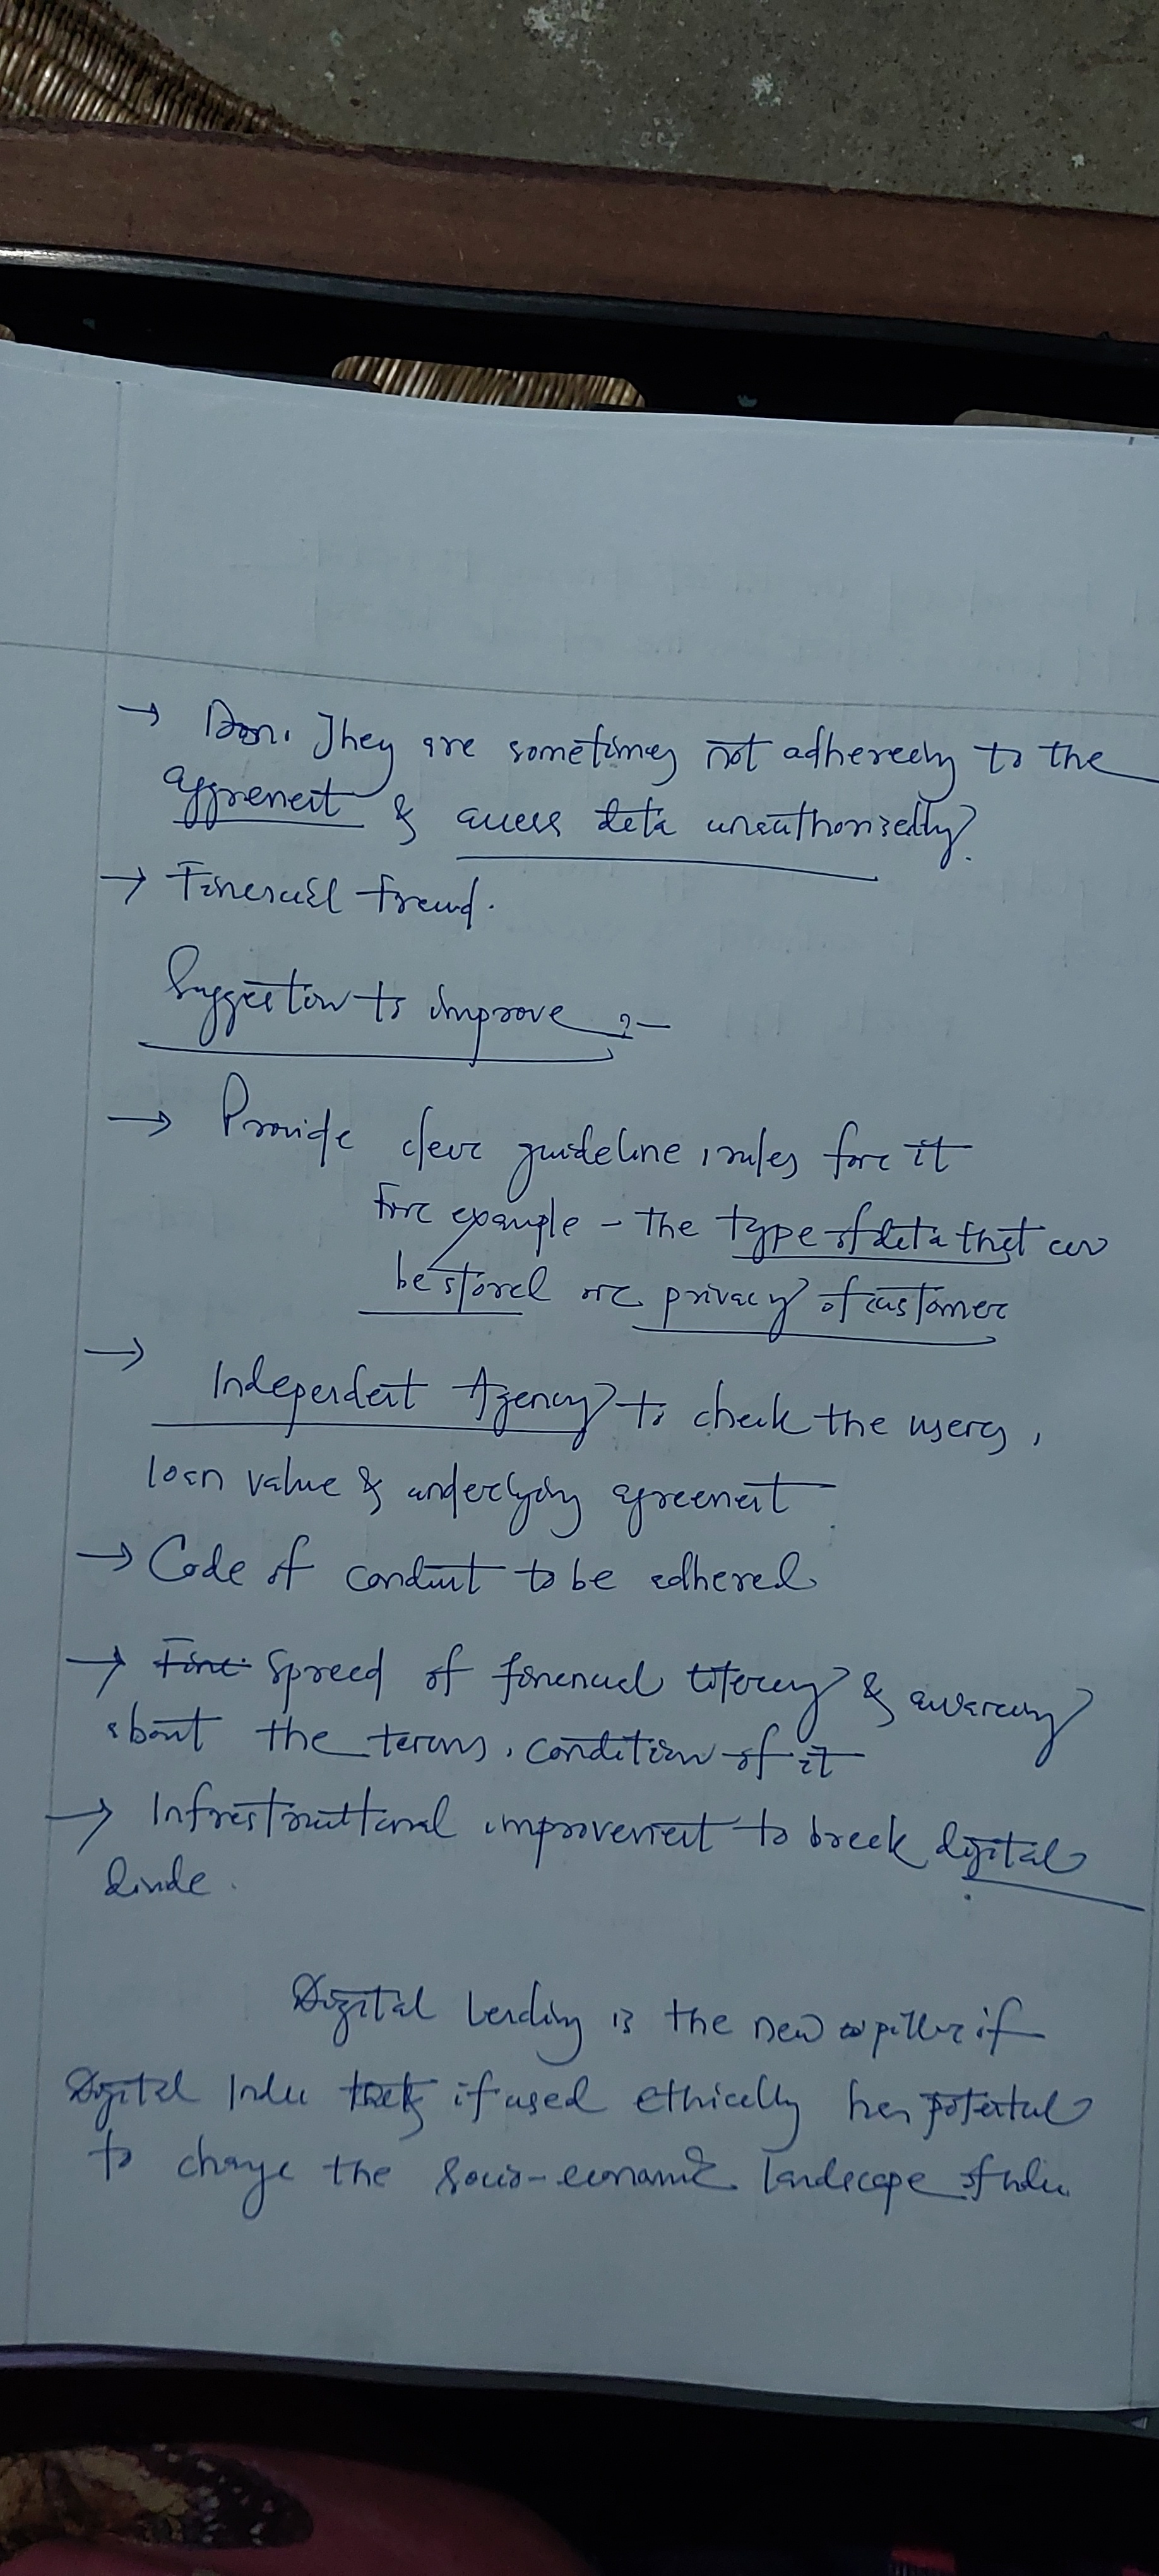 → They are sometimes not adhereely to the
agreneit & access data unauthorisedly.
→ Financial fraud.
Suggestion to improve :-
→ Provide clear guideline, rules for it
For example - the type of data that can
be stored or privacy of customer
→ Independent Agency to check the users,
loan value & underlying agreement.
→ Code of conduct to be adhered
→ Spread of financial literacy & awareness
about the terms, condition of it
→ Infrastructural improvement to break digital
divide.
Digital Lending is the new pillar of
Digital India if used ethically has potential
to change the socio-economic landscape of India